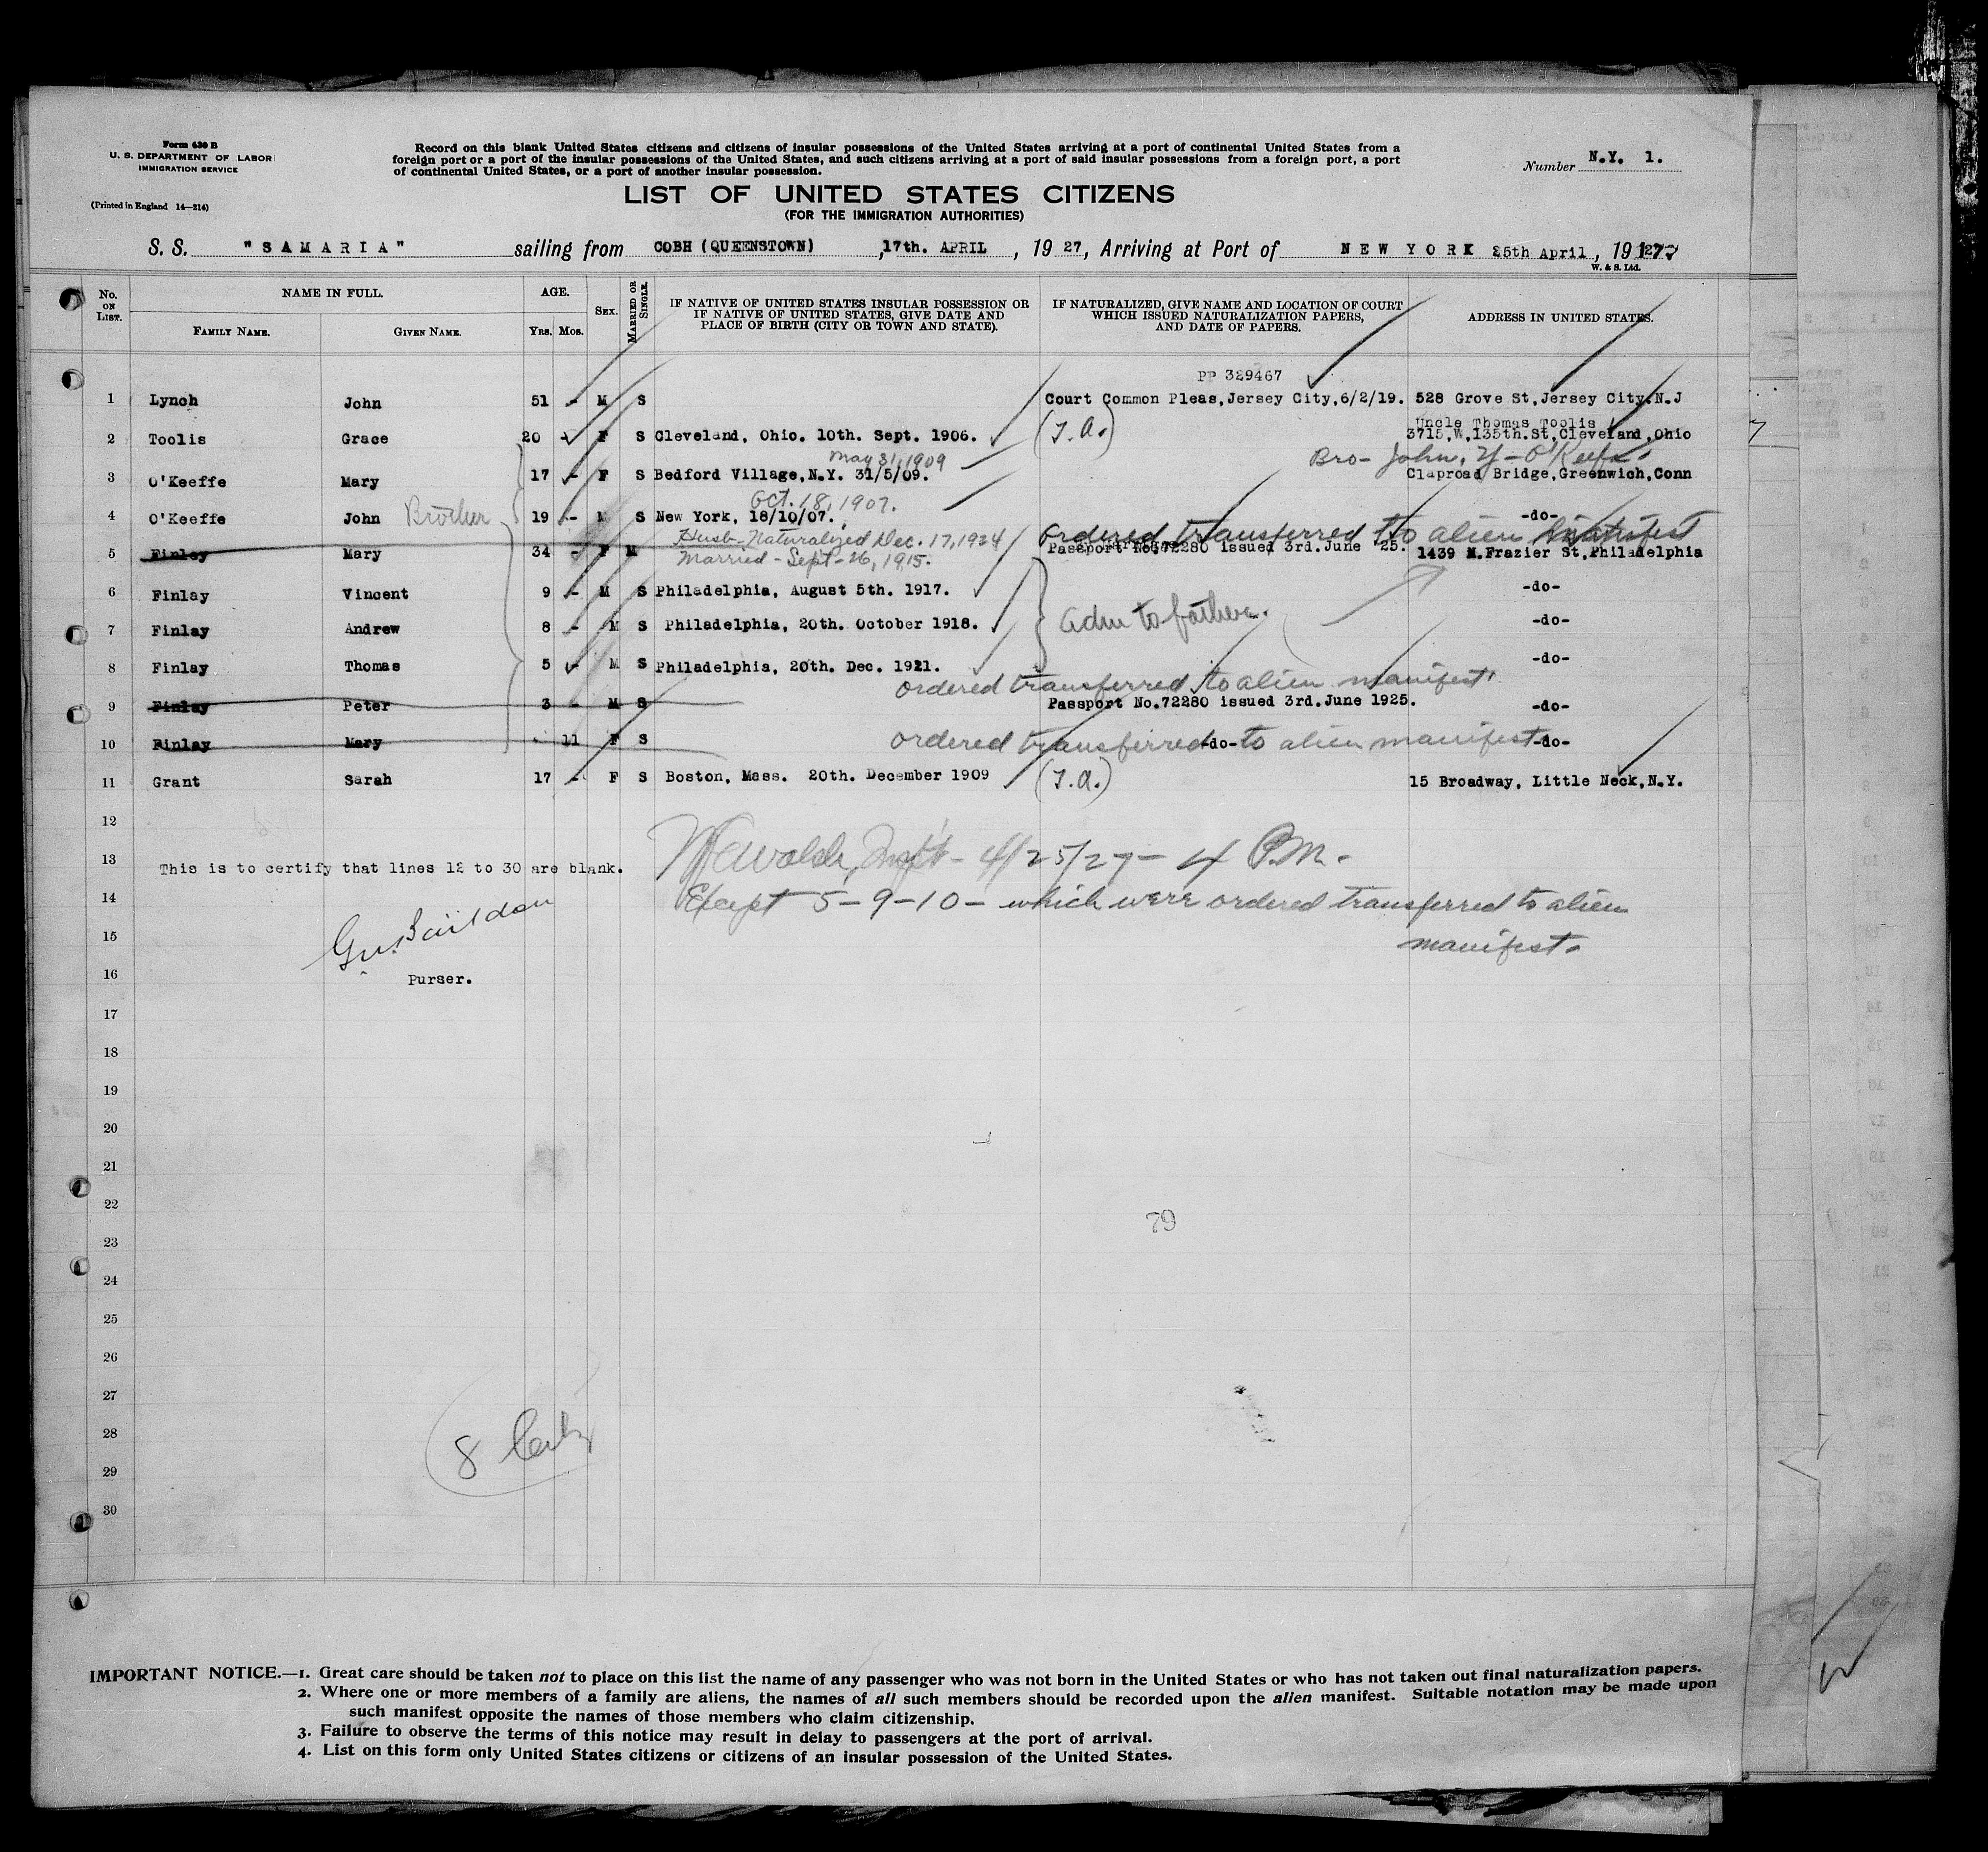 Form 630 B
U. S. DEPARTMENT OF LABOR
IMMIGRATION SERVICE
(Printed in England 14—214)
Record on this blank United States citizens and citizens of insular possessions of the United States arriving at a port of continental United States from a
foreign port or a port of the insular possessions of the United States, and such citizens arriving at a port of said insular possessions from a foreign port, a port
of continental United States, or a port of another insular possession.
Number N.Y. 1.
LIST OF UNITED STATES CITIZENS
(FOR THE IMMIGRATION AUTHORITIES)
S. S. "SAMARIA" sailing from COBH (QUEENSTOWN), 17th. APRIL, 1927, Arriving at Port of NEW YORK 25th April, 19
W. & S. Ltd.
No. ON LIST. NAME IN FULL. AGE. SEX. MARRIED OR SINGLE. IF NATIVE OF UNITED STATES INSULAR POSSESSION OR IF NATIVE OF UNITED STATES, GIVE DATE AND PLACE OF BIRTH (CITY OR TOWN AND STATE). IF NATURALIZED, GIVE NAME AND LOCATION OF COURT WHICH ISSUED NATURALIZATION PAPERS, AND DATE OF PAPERS. ADDRESS IN UNITED STATES.
FAMILY NAME. GIVEN NAME. YRS. MOS.
PP 329467
1 Lynch John 51 - M S Court Common Pleas, Jersey City, 6/2/19. 528 Grove St, Jersey City. N.J
Uncle Thomas Toolis
2 Toolis Grace 20 - F S Cleveland, Ohio. 10th. Sept. 1906. (T.A.) 3715, W, 135th. St, Cleveland, Ohio
May 31, 1909 Bro- John, Y- O'Keefe.
3 O'Keeffe Mary 17 - F S Bedford Village, N.Y. 31/5/09. Claproad Bridge, Greenwich, Conn
Oct. 18, 1907.
4 O'Keeffe John Brother 19 - M S New York, 18/10/07. -do-
Husb- Naturalized Dec. 17, 1924 ordered transferred to alien manifest
5 Finley Mary 34 - F M Married - Sept- 26, 1915. Passport No. 72280 issued 3rd. June '25. 1439 N. Frazier St, Philadelphia
6 Finlay Vincent 9 - M S Philadelphia, August 5th. 1917. -do-
7 Finlay Andrew 8 - M S Philadelphia, 20th. October 1918. Adm to father. -do-
8 Finlay Thomas 5 - M S Philadelphia, 20th. Dec. 1921. -do-
ordered transferred to alien manifest
9 Finlay Peter 3 - M S Passport No. 72280 issued 3rd. June 1925. -do-
10 Finlay Mary - 11 F S ordered transferred -do- to alien manifest -do-
11 Grant Sarah 17 - F S Boston, Mass. 20th. December 1909 (T.A.) 15 Broadway, Little Neck, N.Y.
12
13 This is to certify that lines 12 to 30 are blank. 4/25/27 - 4 P.M.
14 Except 5-9-10- which were ordered transferred to alien
15 manifest.
16 Purser.
17
18
19
20
21
22
79
23
24
25
26
27
28
8
29
30
IMPORTANT NOTICE.—1. Great care should be taken not to place on this list the name of any passenger who was not born in the United States or who has not taken out final naturalization papers.
2. Where one or more members of a family are aliens, the names of all such members should be recorded upon the alien manifest. Suitable notation may be made upon
such manifest opposite the names of those members who claim citizenship.
3. Failure to observe the terms of this notice may result in delay to passengers at the port of arrival.
4. List on this form only United States citizens or citizens of an insular possession of the United States.